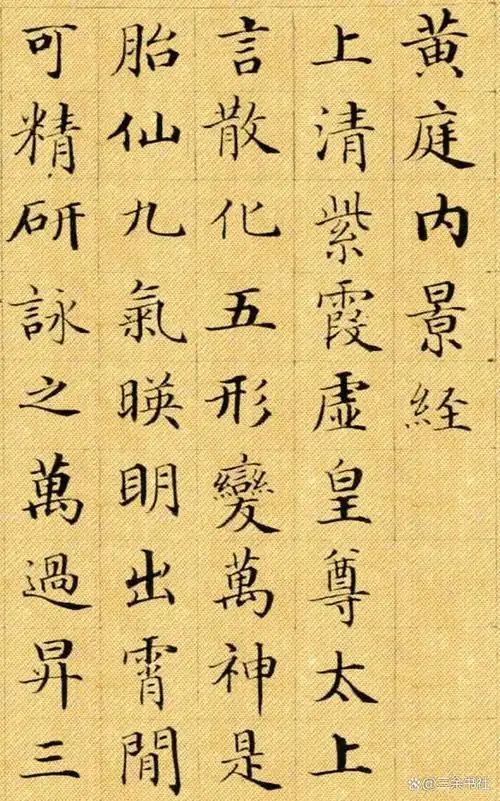 黄庭内景経
上清紫霞虚皇尊太上
言散化五形變萬神是
胎仙九氣暎明出霄間
可精研詠之萬過昇三
三余书社